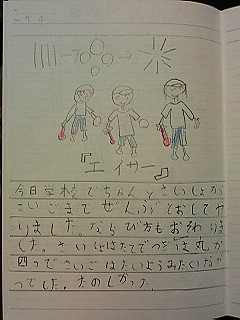 『エイサー』
今日学校でちゃんとさいしょから
さいごまでぜんぶとおしてや
りました。ならび方もおわりま
した。さいしょはたてでつぎは丸が
四つでさいごはたいようみたいなや
つでした。たのしかった。